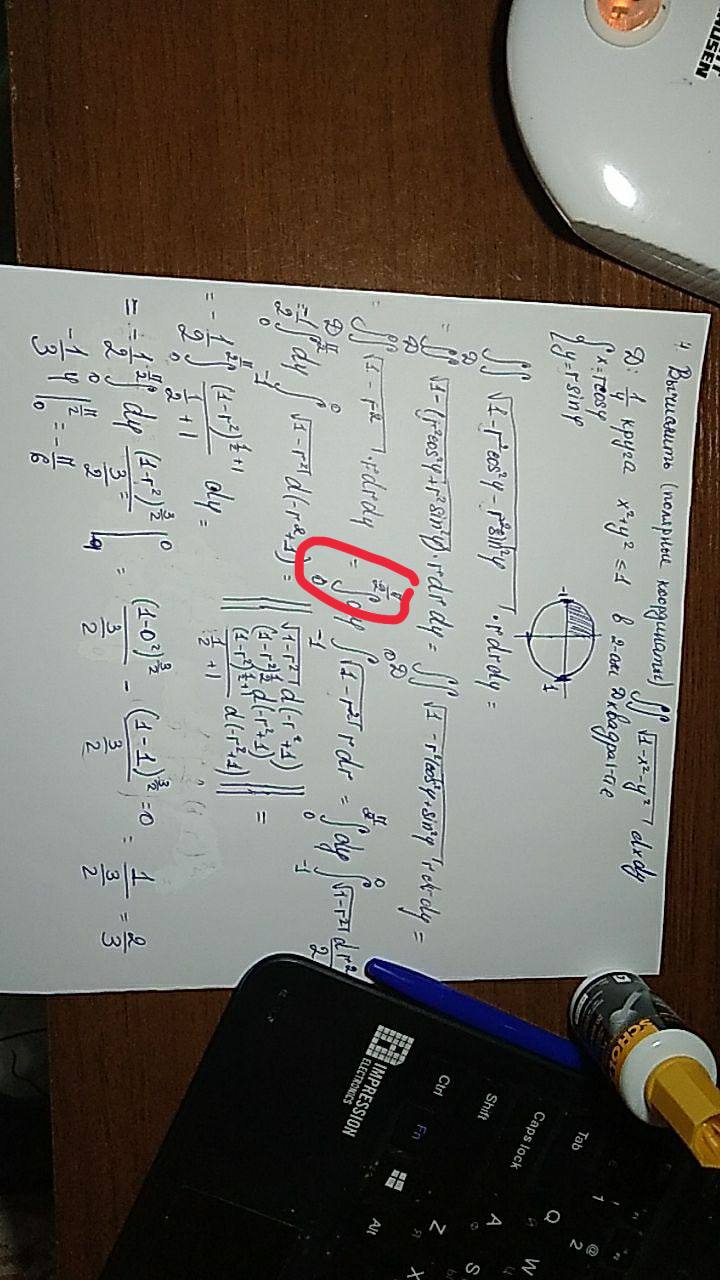 Вычислить (полярные координаты) ∬ √(1-x²-y²) dxdy
D: 1/4 круга x²+y² ≤ 1 в 2-ом квадранте
{x=rcosφ
{y=rsinφ
-1 1
∬_D √(1-r²cos²φ-r²sin²φ) · rdrdφ =
= ∬_D √(1-(r²cos²φ+r²sin²φ)) · rdrdφ = ∬_D √(1-r²cos²φ+sin²φ) rdrdφ =
= ∬_D √(1-r²) · rdrdφ = ∫_0^{π/2} dφ ∫_{-1}^0 √(1-r²) rdr = ∫_0^{π/2} dφ ∫_{-1}^0 √(1-r²) dr²/2
= -1/2 ∫_0^{π/2} dφ ∫_{-1}^0 √(1-r²) d(-r²+1) = || √(1-r²) d(-r²+1)
(1-r²)^{1/2} d(-r²+1)
(1-r²)^{1/2+1} / (1/2+1) d(-r²+1) || =
= -1/2 ∫_0^{π/2} (1-r²)^{1/2+1} / (1/2+1) dφ =
= -1/2 ∫_0^{π/2} dφ (1-r²)^{3/2} / (3/2) = |_{-1}^0 = (1-0²)^{3/2} / (3/2) - (1-1)^{3/2} / (3/2) =0 = 1/(3/2) = 2/3
-1/3 φ |_0^{π/2} = -π/6
HUSEN
IMPRESSION
ELECTRONICS
Ctrl Fn Alt
Shift Z X
Caps lock A S
Tab Q W
1 2 @